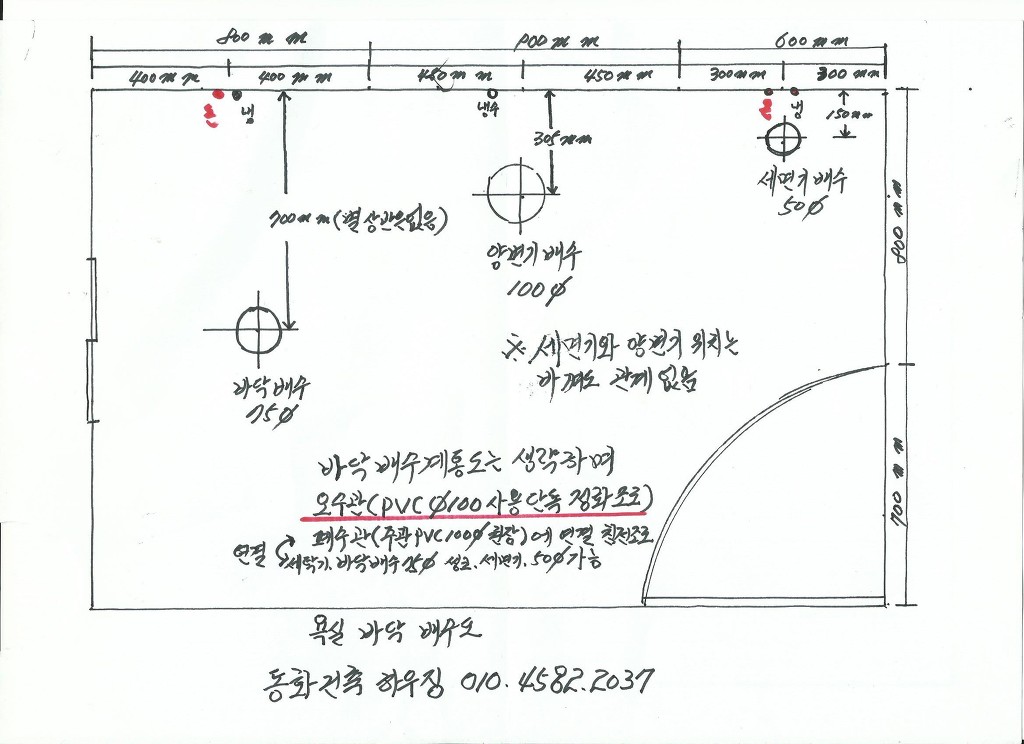 800mm 900mm 600mm
400mm 400mm 450mm 450mm 300mm 300mm
온 냉 냉수 온 냉 150mm
305mm
세면기 배수
50∅
700mm (별 상관은없음)
양변기 배수
100∅
800mm
※ 세면기와 양변기 위치는
바껴도 관계 없음
바닥 배수
75∅
바닥 배수계통도는 생략하며
오수관(PVC ∅100 사용 단독 정화조로)
폐수관(주관 PVC 100∅ 권장)에 연결 침전조로
연결 세탁기. 바닥배수 75∅ 싱크. 세면기. 50∅ 가능
700mm
욕실 바닥 배수도
동화건축 하우징 010.4582.2037